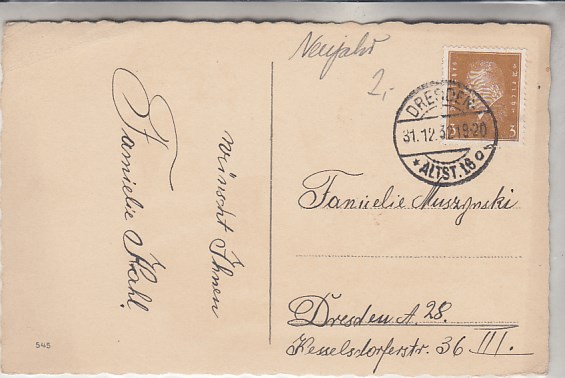 Neujahr
2,-
DRESDEN
31.12.32 18-20
* ALTST. 16 o
3 3
wünscht Ihnen
Familie Kahl.
Familie Muszynski
Dresden A. 28.
Kesselsdorferstr. 36 III.
545